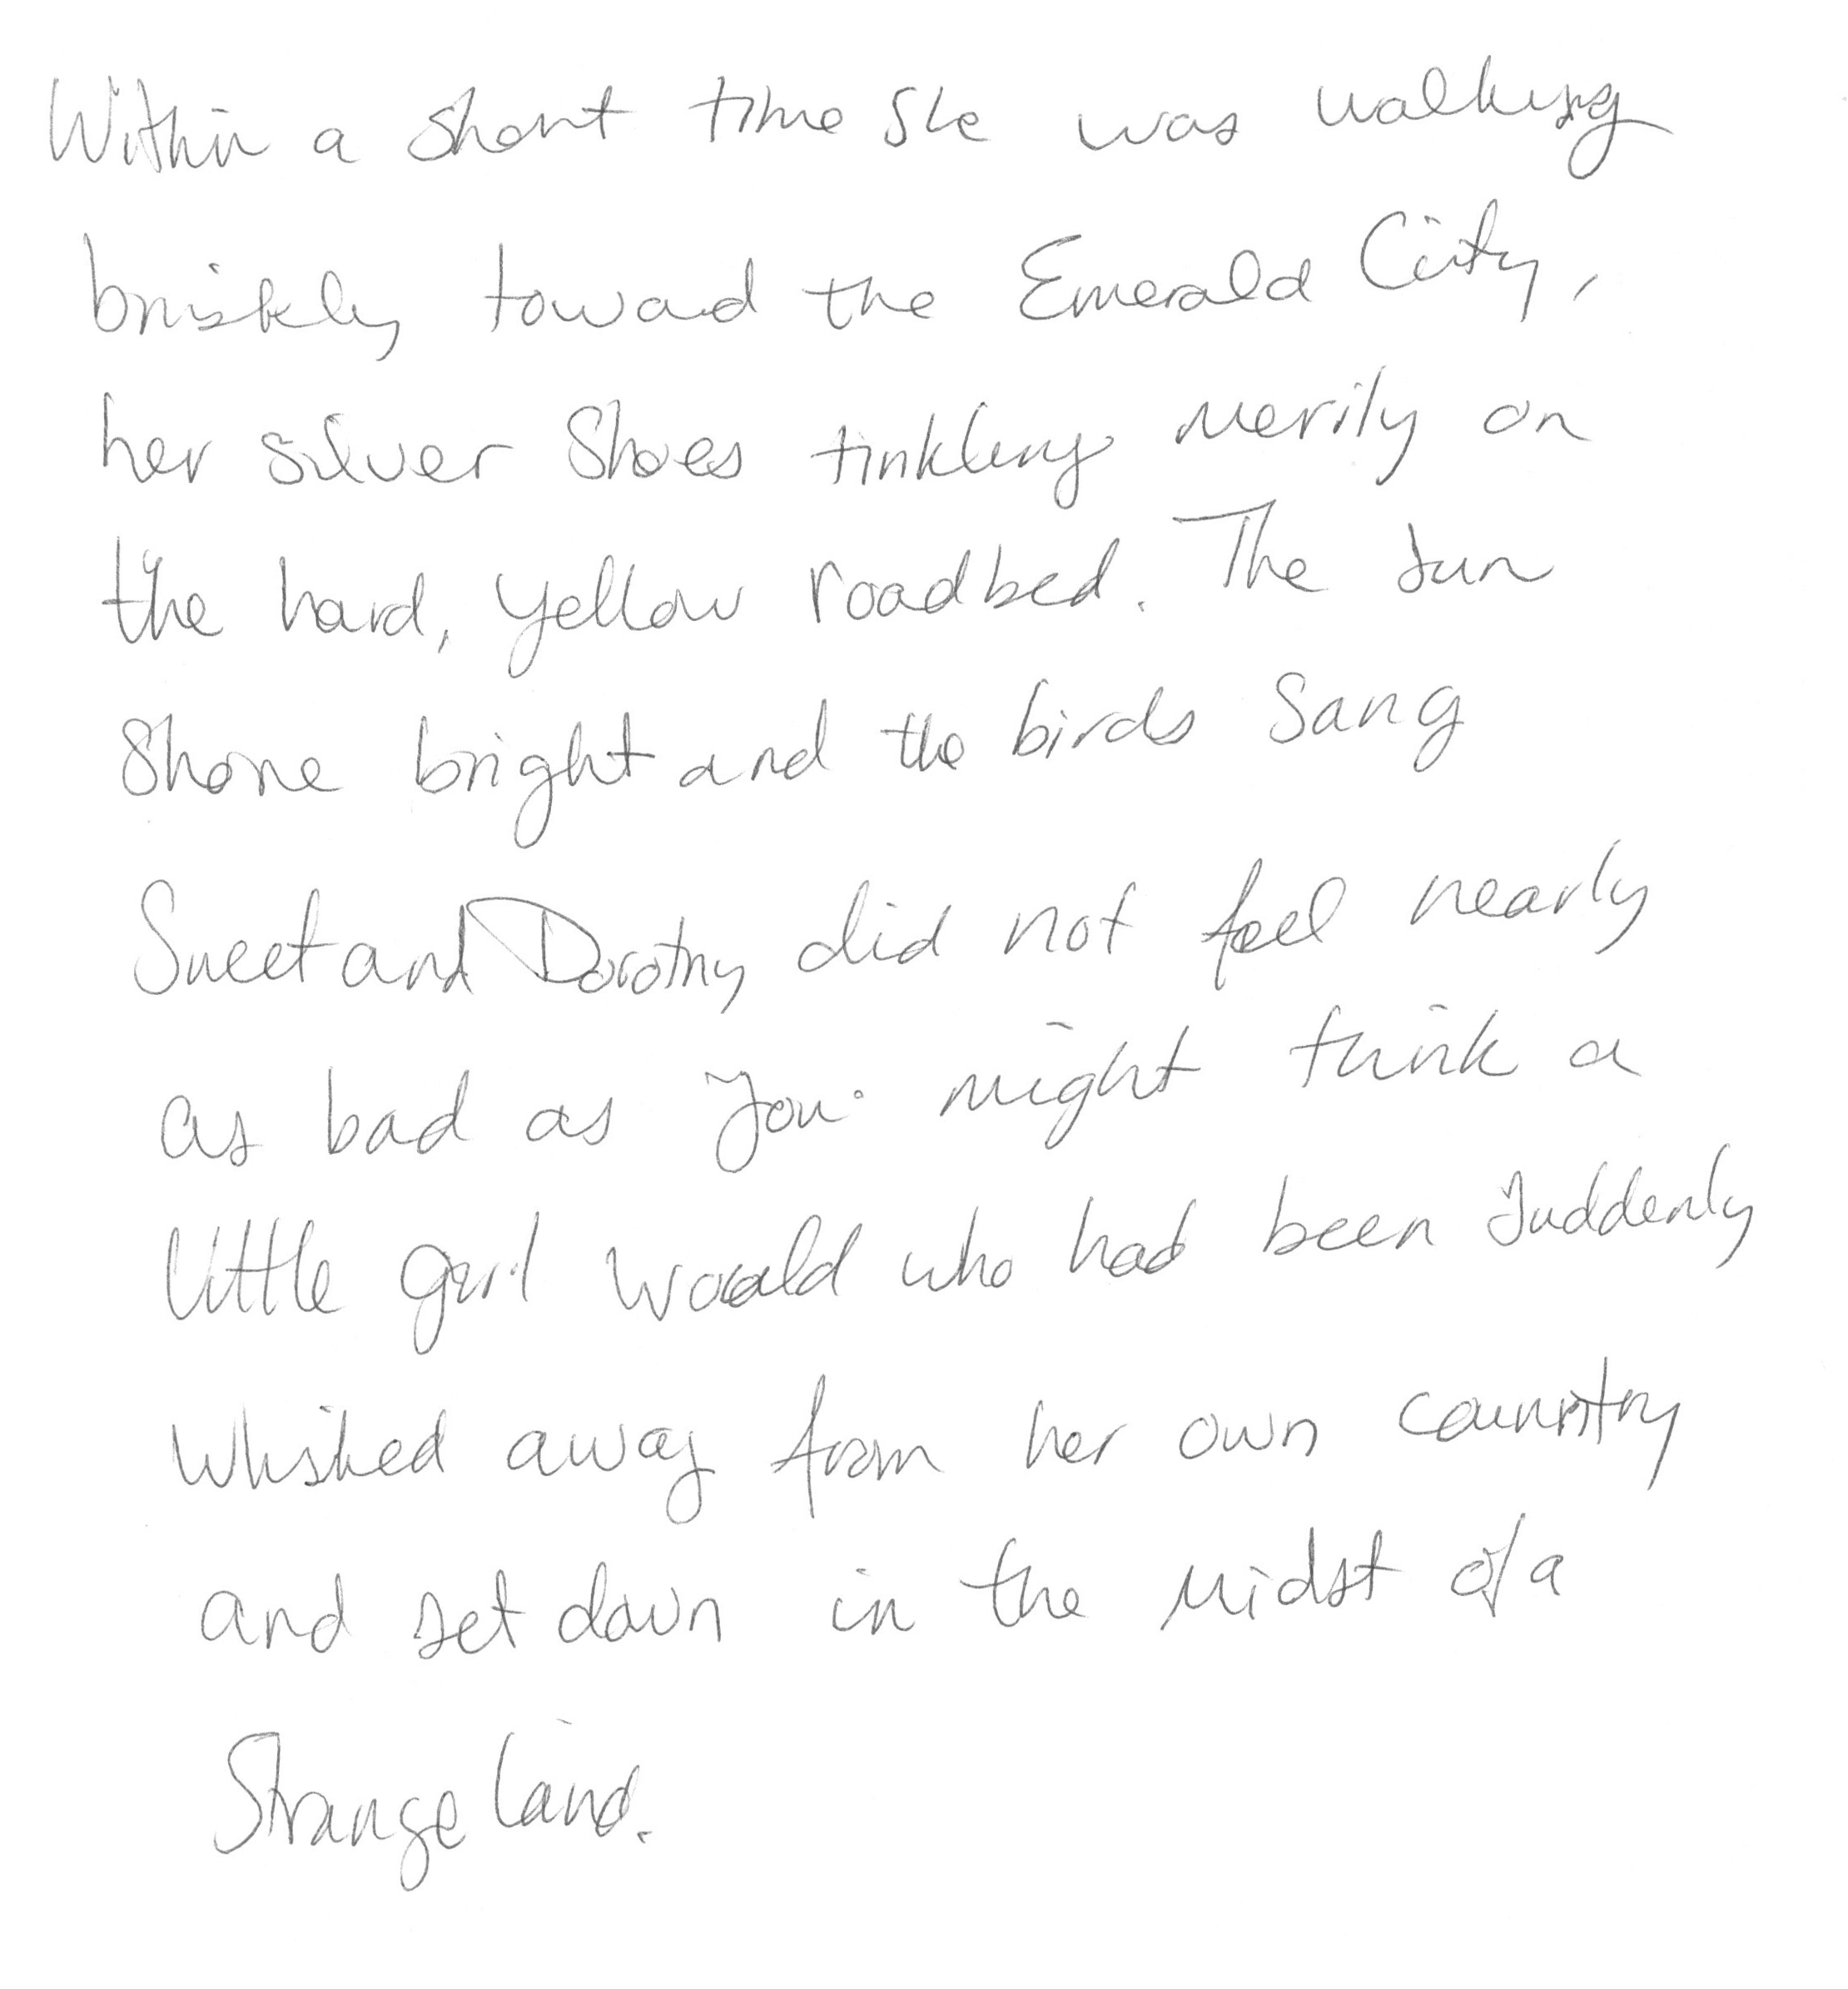 Within a short time she was walking
briskly toward the Emerald City,
her silver Shoes tinkling merily on
the hard, yellow roadbed. The sun
shone bright and the birds sang
sweet and Dorothy did not feel nearly
as bad as you might think a
little girl would who had been suddenly
whisked away from her own country
and set down in the midst of a
strange land.